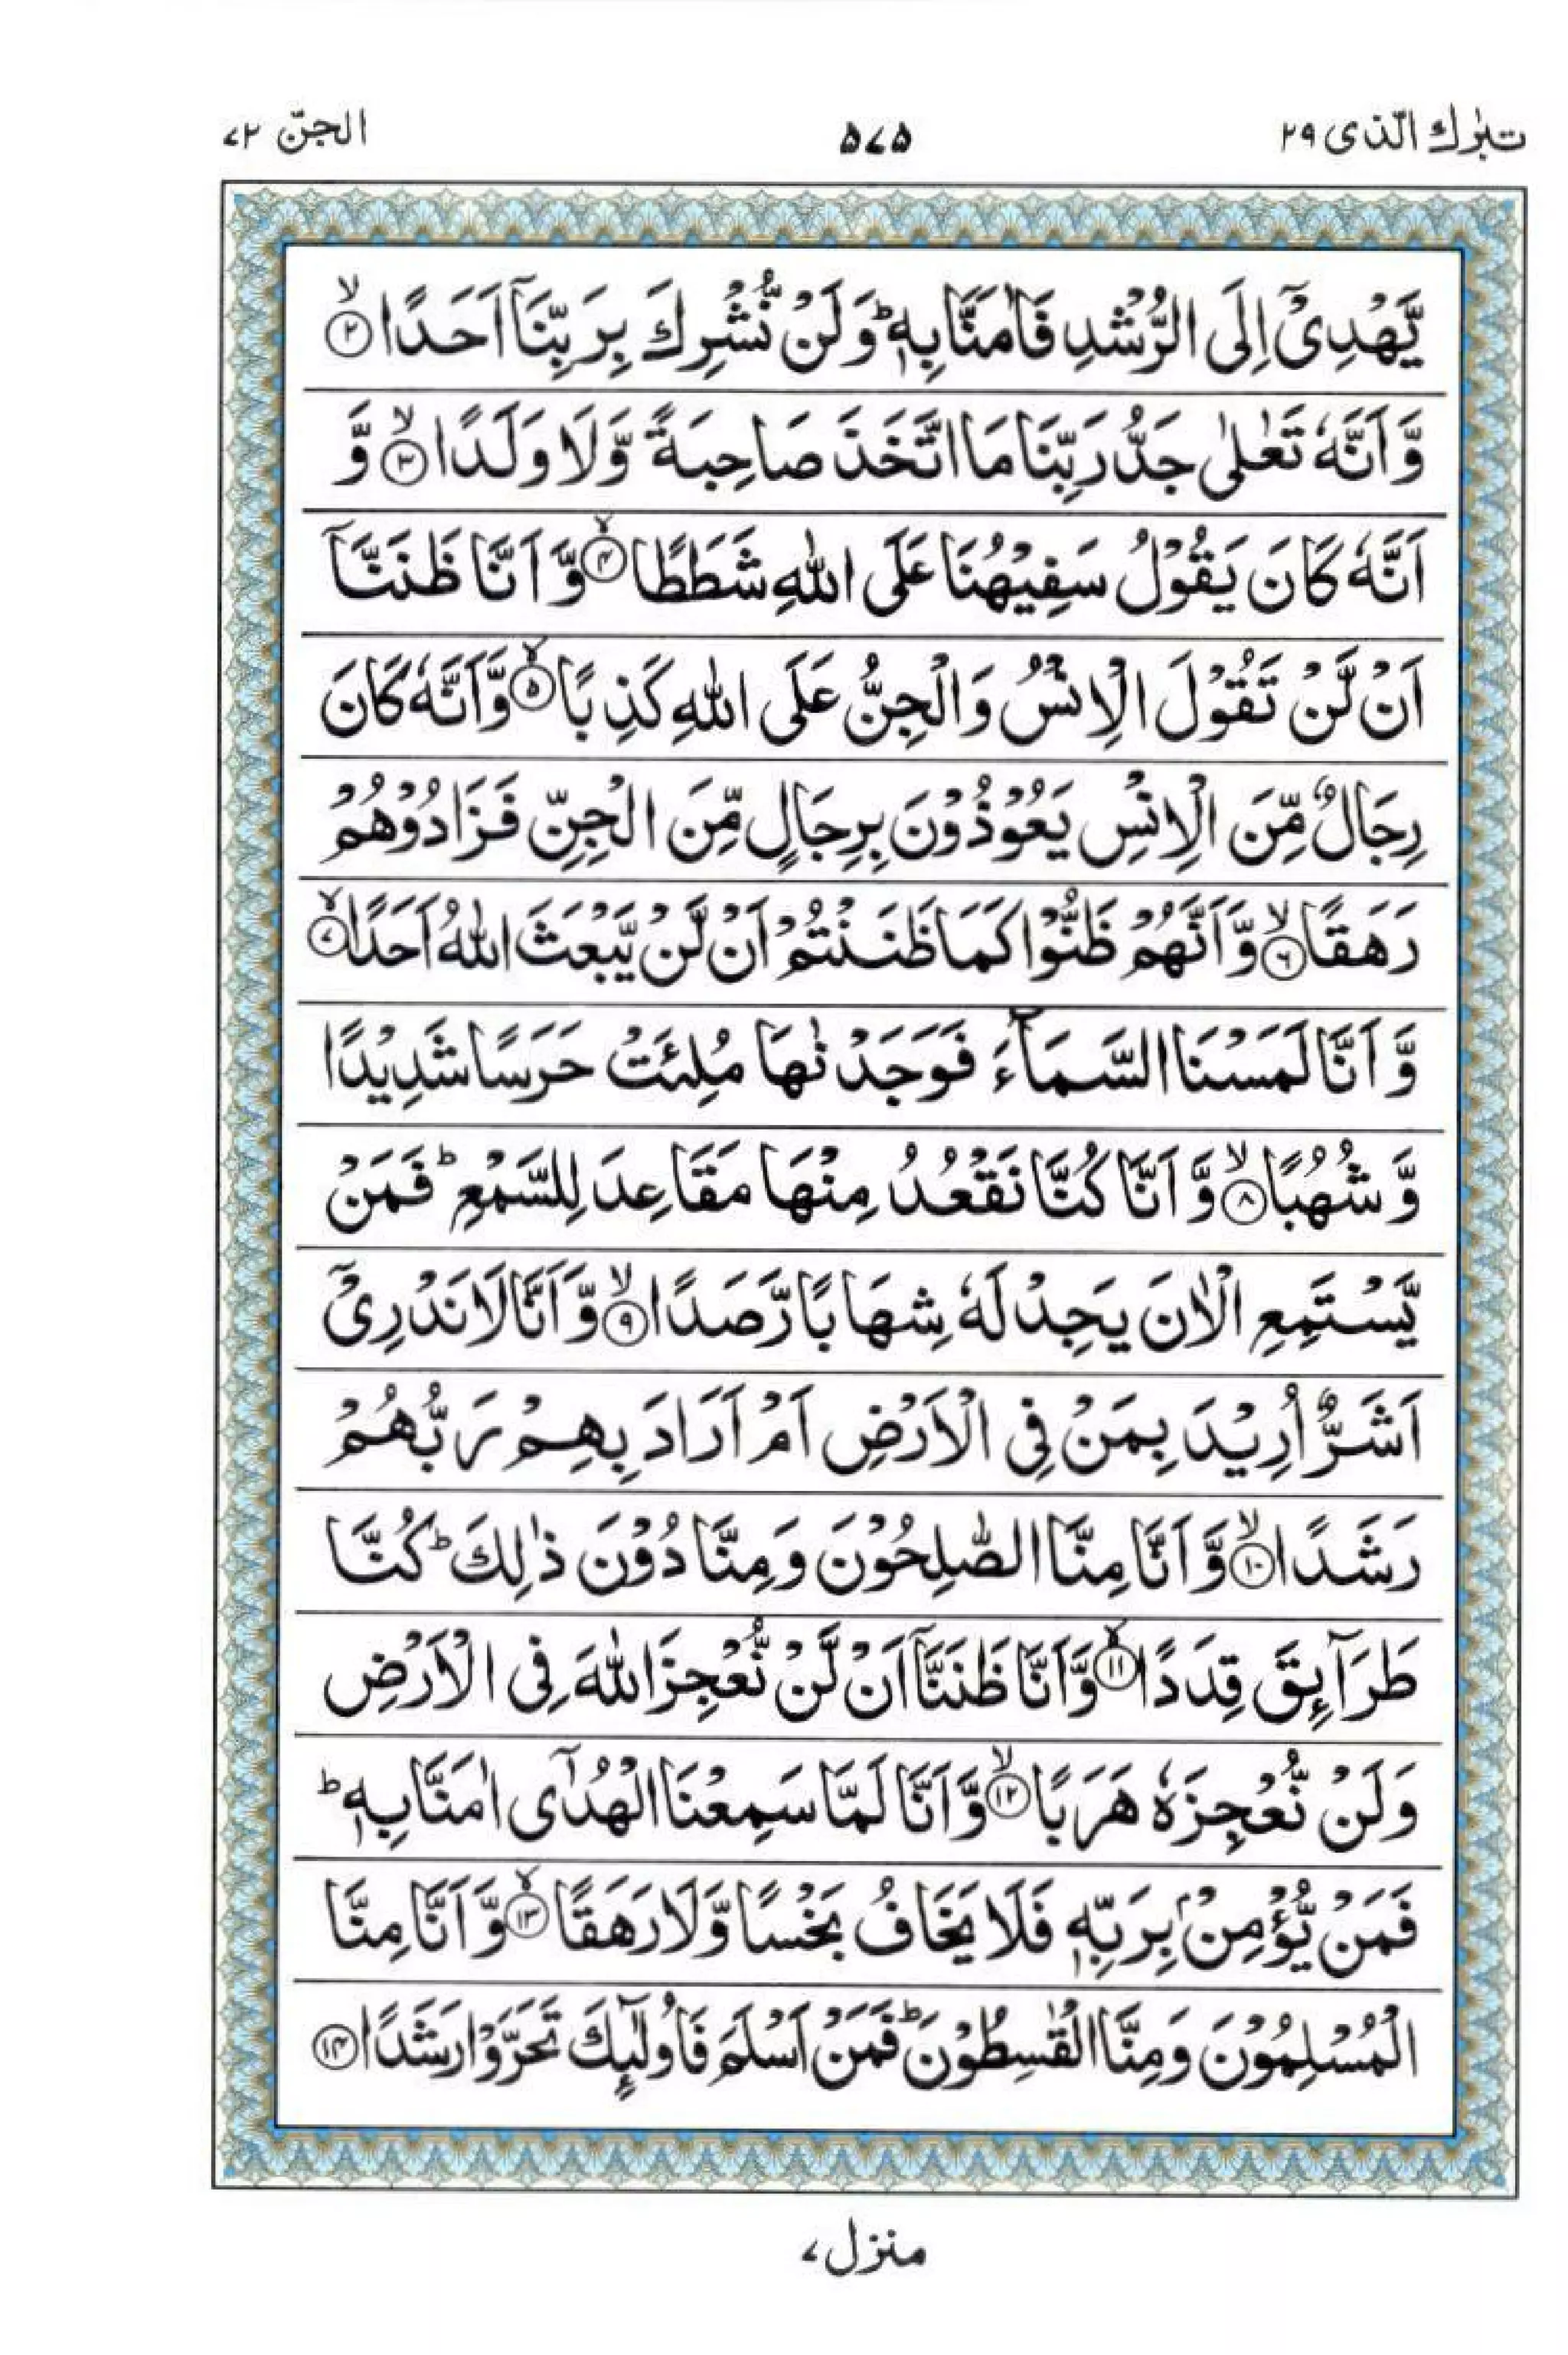 تبٰرك الّذی ۲۹ ۵۷۵ الجنّ ۷۲
یَّهْدِیْۤ اِلَی الرُّشْدِ فَاٰمَنَّا بِهٖ ؕ وَ لَنْ نُّشْرِكَ بِرَبِّنَاۤ اَحَدًا ۙ﴿۲﴾
وَّ اَنَّهٗ تَعٰلٰی جَدُّ رَبِّنَا مَا اتَّخَذَ صَاحِبَةً وَّ لَا وَلَدًا ۙ﴿۳﴾ وَّ
اَنَّهٗ كَانَ یَقُوْلُ سَفِیْهُنَا عَلَی اللّٰهِ شَطَطًا ۙ﴿۴﴾ وَّ اَنَّا ظَنَنَّاۤ
اَنْ لَّنْ تَقُوْلَ الْاِنْسُ وَ الْجِنُّ عَلَی اللّٰهِ كَذِبًا ۙ﴿۵﴾ وَّ اَنَّهٗ كَانَ
رِجَالٌ مِّنَ الْاِنْسِ یَعُوْذُوْنَ بِرِجَالٍ مِّنَ الْجِنِّ فَزَادُوْهُمْ
رَهَقًا ۙ﴿۶﴾ وَّ اَنَّهُمْ ظَنُّوْا كَمَا ظَنَنْتُمْ اَنْ لَّنْ یَّبْعَثَ اللّٰهُ اَحَدًا ۙ﴿۷﴾
وَّ اَنَّا لَمَسْنَا السَّمَآءَ فَوَجَدْنٰهَا مُلِئَتْ حَرَسًا شَدِیْدًا
وَّ شُهُبًا ۙ﴿۸﴾ وَّ اَنَّا كُنَّا نَقْعُدُ مِنْهَا مَقَاعِدَ لِلسَّمْعِ ؕ فَمَنْ
یَّسْتَمِعِ الْاٰنَ یَجِدْ لَهٗ شِهَابًا رَّصَدًا ۙ﴿۹﴾ وَّ اَنَّا لَا نَدْرِیْۤ
اَشَرٌّ اُرِیْدَ بِمَنْ فِی الْاَرْضِ اَمْ اَرَادَ بِهِمْ رَبُّهُمْ
رَشَدًا ۙ﴿۱۰﴾ وَّ اَنَّا مِنَّا الصّٰلِحُوْنَ وَ مِنَّا دُوْنَ ذٰلِكَ ؕ كُنَّا
طَرَآئِقَ قِدَدًا ۙ﴿۱۱﴾ وَّ اَنَّا ظَنَنَّاۤ اَنْ لَّنْ نُّعْجِزَ اللّٰهَ فِی الْاَرْضِ
وَ لَنْ نُّعْجِزَهٗ هَرَبًا ۙ﴿۱۲﴾ وَّ اَنَّا لَمَّا سَمِعْنَا الْهُدٰۤی اٰمَنَّا بِهٖ ؕ
فَمَنْ یُّؤْمِنْۢ بِرَبِّهٖ فَلَا یَخَافُ بَخْسًا وَّ لَا رَهَقًا ۙ﴿۱۳﴾ وَّ اَنَّا مِنَّا
الْمُسْلِمُوْنَ وَ مِنَّا الْقٰسِطُوْنَ ؕ فَمَنْ اَسْلَمَ فَاُولٰٓئِكَ تَحَرَّوْا رَشَدًا ﴿۱۴﴾
منزل ۷